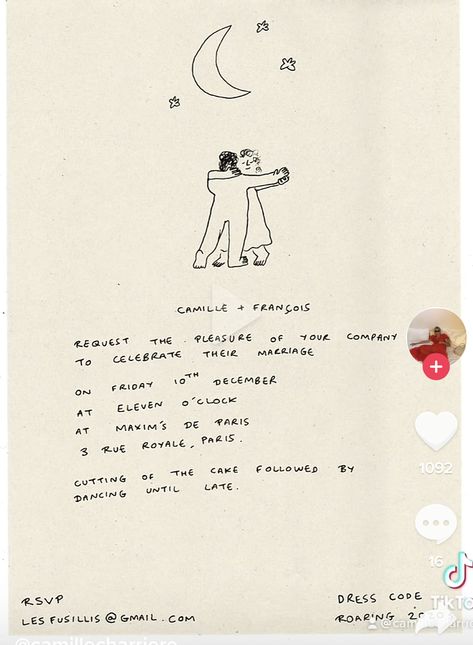 CAMILLE + FRANÇOIS
REQUEST THE PLEASURE OF YOUR COMPANY
TO CELEBRATE THEIR MARRIAGE
ON FRIDAY 10TH DECEMBER
AT ELEVEN O'CLOCK
AT MAXIM'S DE PARIS
3 RUE ROYALE, PARIS.
CUTTING OF THE CAKE FOLLOWED BY
DANCING UNTIL LATE.
1092
16
RSVP
LESFUSILLIS@GMAIL.COM
DRESS CODE
ROARING
TikTok
@camillecharriere